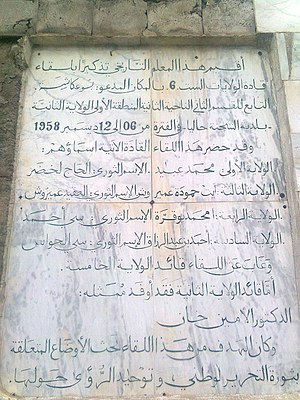 أقيم هذا المعلم التاريخي تذكيرا بلقاء
قادة الولايات الست 6. بالمكان المدعو:
التابع للقسم الثاني الناحية الثانية المنطقة الأولى الولاية الثانية
بلدية حاليا. في الفترة من 06 إلى 12 ديسمبر 1958
وقد حضر هذا اللقاء القادة الآتية أسماؤهم:
الولاية الأولى: محمد عبيد الإسم الثوري: الحاج لخضر
الولاية الثالثة: آيت حمودة عميروش الإسم الثوري: العقيد عميروش
الولاية الرابعة: امحمد بوقرة الإسم الثوري: سي أحمد
الولاية السادسة: أحمد بن عبد الرزاق الإسم الثوري: سي الحواس
وغاب عن اللقاء قائد الولاية الخامسة.
أما قائد الولاية الثانية فقد أوفد ممثله:
الدكتور الأمين خان
وكان الهدف من هذا اللقاء بحث الأوضاع المتعلقة
بثورة التحرير الوطني وتوحيد الرؤى حولها